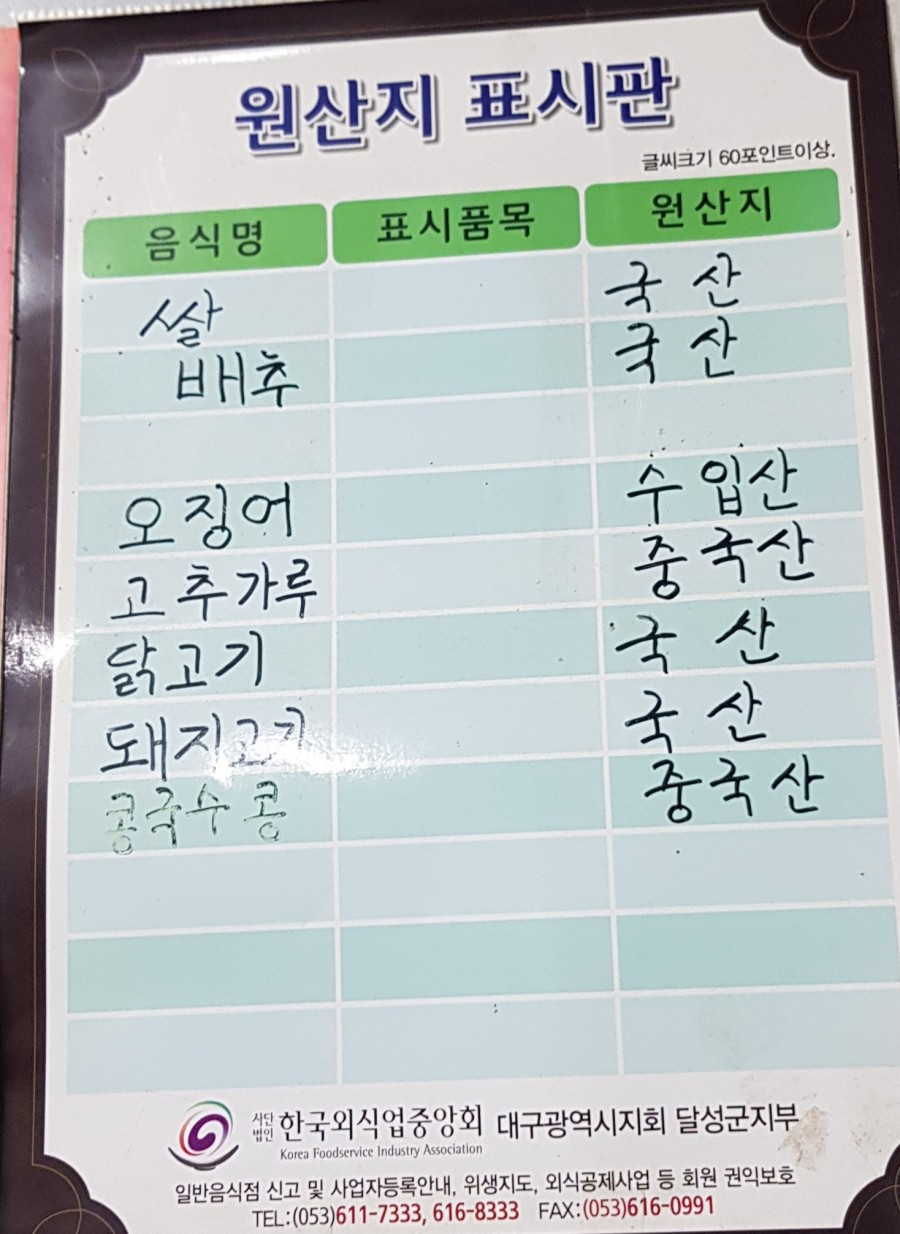 원산지 표시판
글씨크기 60포인트이상.
음식명 표시품목 원산지
쌀 국산
배추 국산
오징어 수입산
고추가루 중국산
닭고기 국산
돼지고기 국산
콩국수 콩 중국산
사단법인 한국외식업중앙회 대구광역시지회 달성군지부
Korea Foodservice Industry Association
일반음식점 신고 및 사업자등록안내, 위생지도, 외식공제사업 등 회원 권익보호
TEL:(053)611-7333, 616-8333 FAX:(053)616-0991